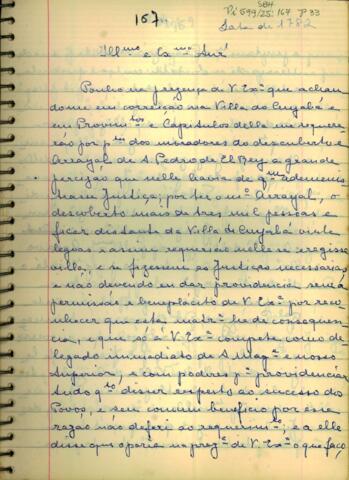 167
584
Pi 599/25: 167 P 33
Sala de 1782
Ill.mo e Ex.mo Snr
Ponho na prezença de V. Ex.a que achan
dome em correição na Villa do Cuyabá e
em Provim.tos e Capitulos della me requere
rão por p.te dos moradores do descoberto e
Arrayal de S. Pedro de El Rey a grande
percizão que nelle havia de q.m admenis
trasse Justiça; por ter o m.o Arrayal, o
descoberto mais de tres mil pessoas e
ficar distante da Villa do Cuyabá vinte
legoas e assim requerião nelle se eregisse
villa, e se fizessem as Justiças necessarias
e não devendo eu dar providencias sem a
permissão e beneplácito de V. Ex.a por reco
nhecer que esta mater.a he de consequen
cia, e que só a V. Ex.a compete, como de
legado immediato de S. Mag.e e nosso
Superior, e com podores p.a providenciar
tudo q.to dicer respeito ao sucesso dos
Povos, e seu comum beneficio por essa
razão não deferi ao requerim.to; e a elle
disse que oporia na prez.a de V. Ex.a o que faço,